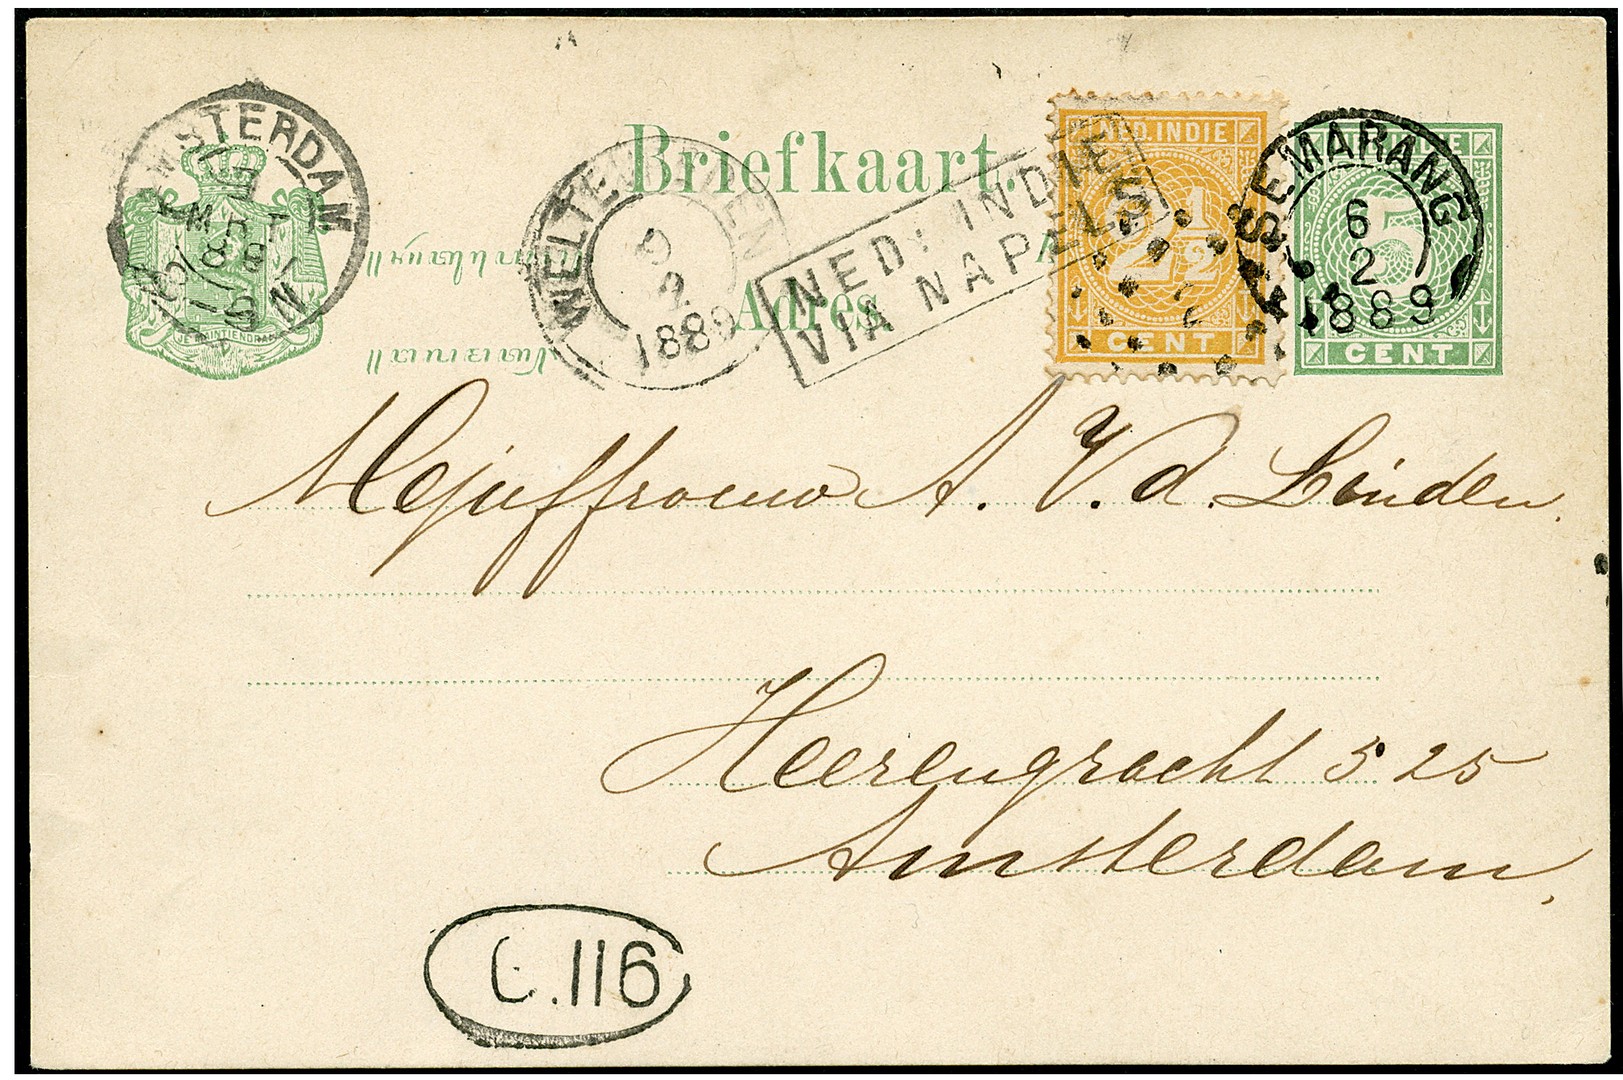 AMSTERDAM
JE MAINTIENDRAI
Briefkaart.
Adres
WELTEVREDEN
9
2
1889
NED: INDIE
VIA NAPELS
NED. INDIE
2½
CENT
SEMARANG
6
2
1889
5
CENT
Mejuffrouw A. V. d. Linden.
Heerengracht 525
Amsterdam.
116